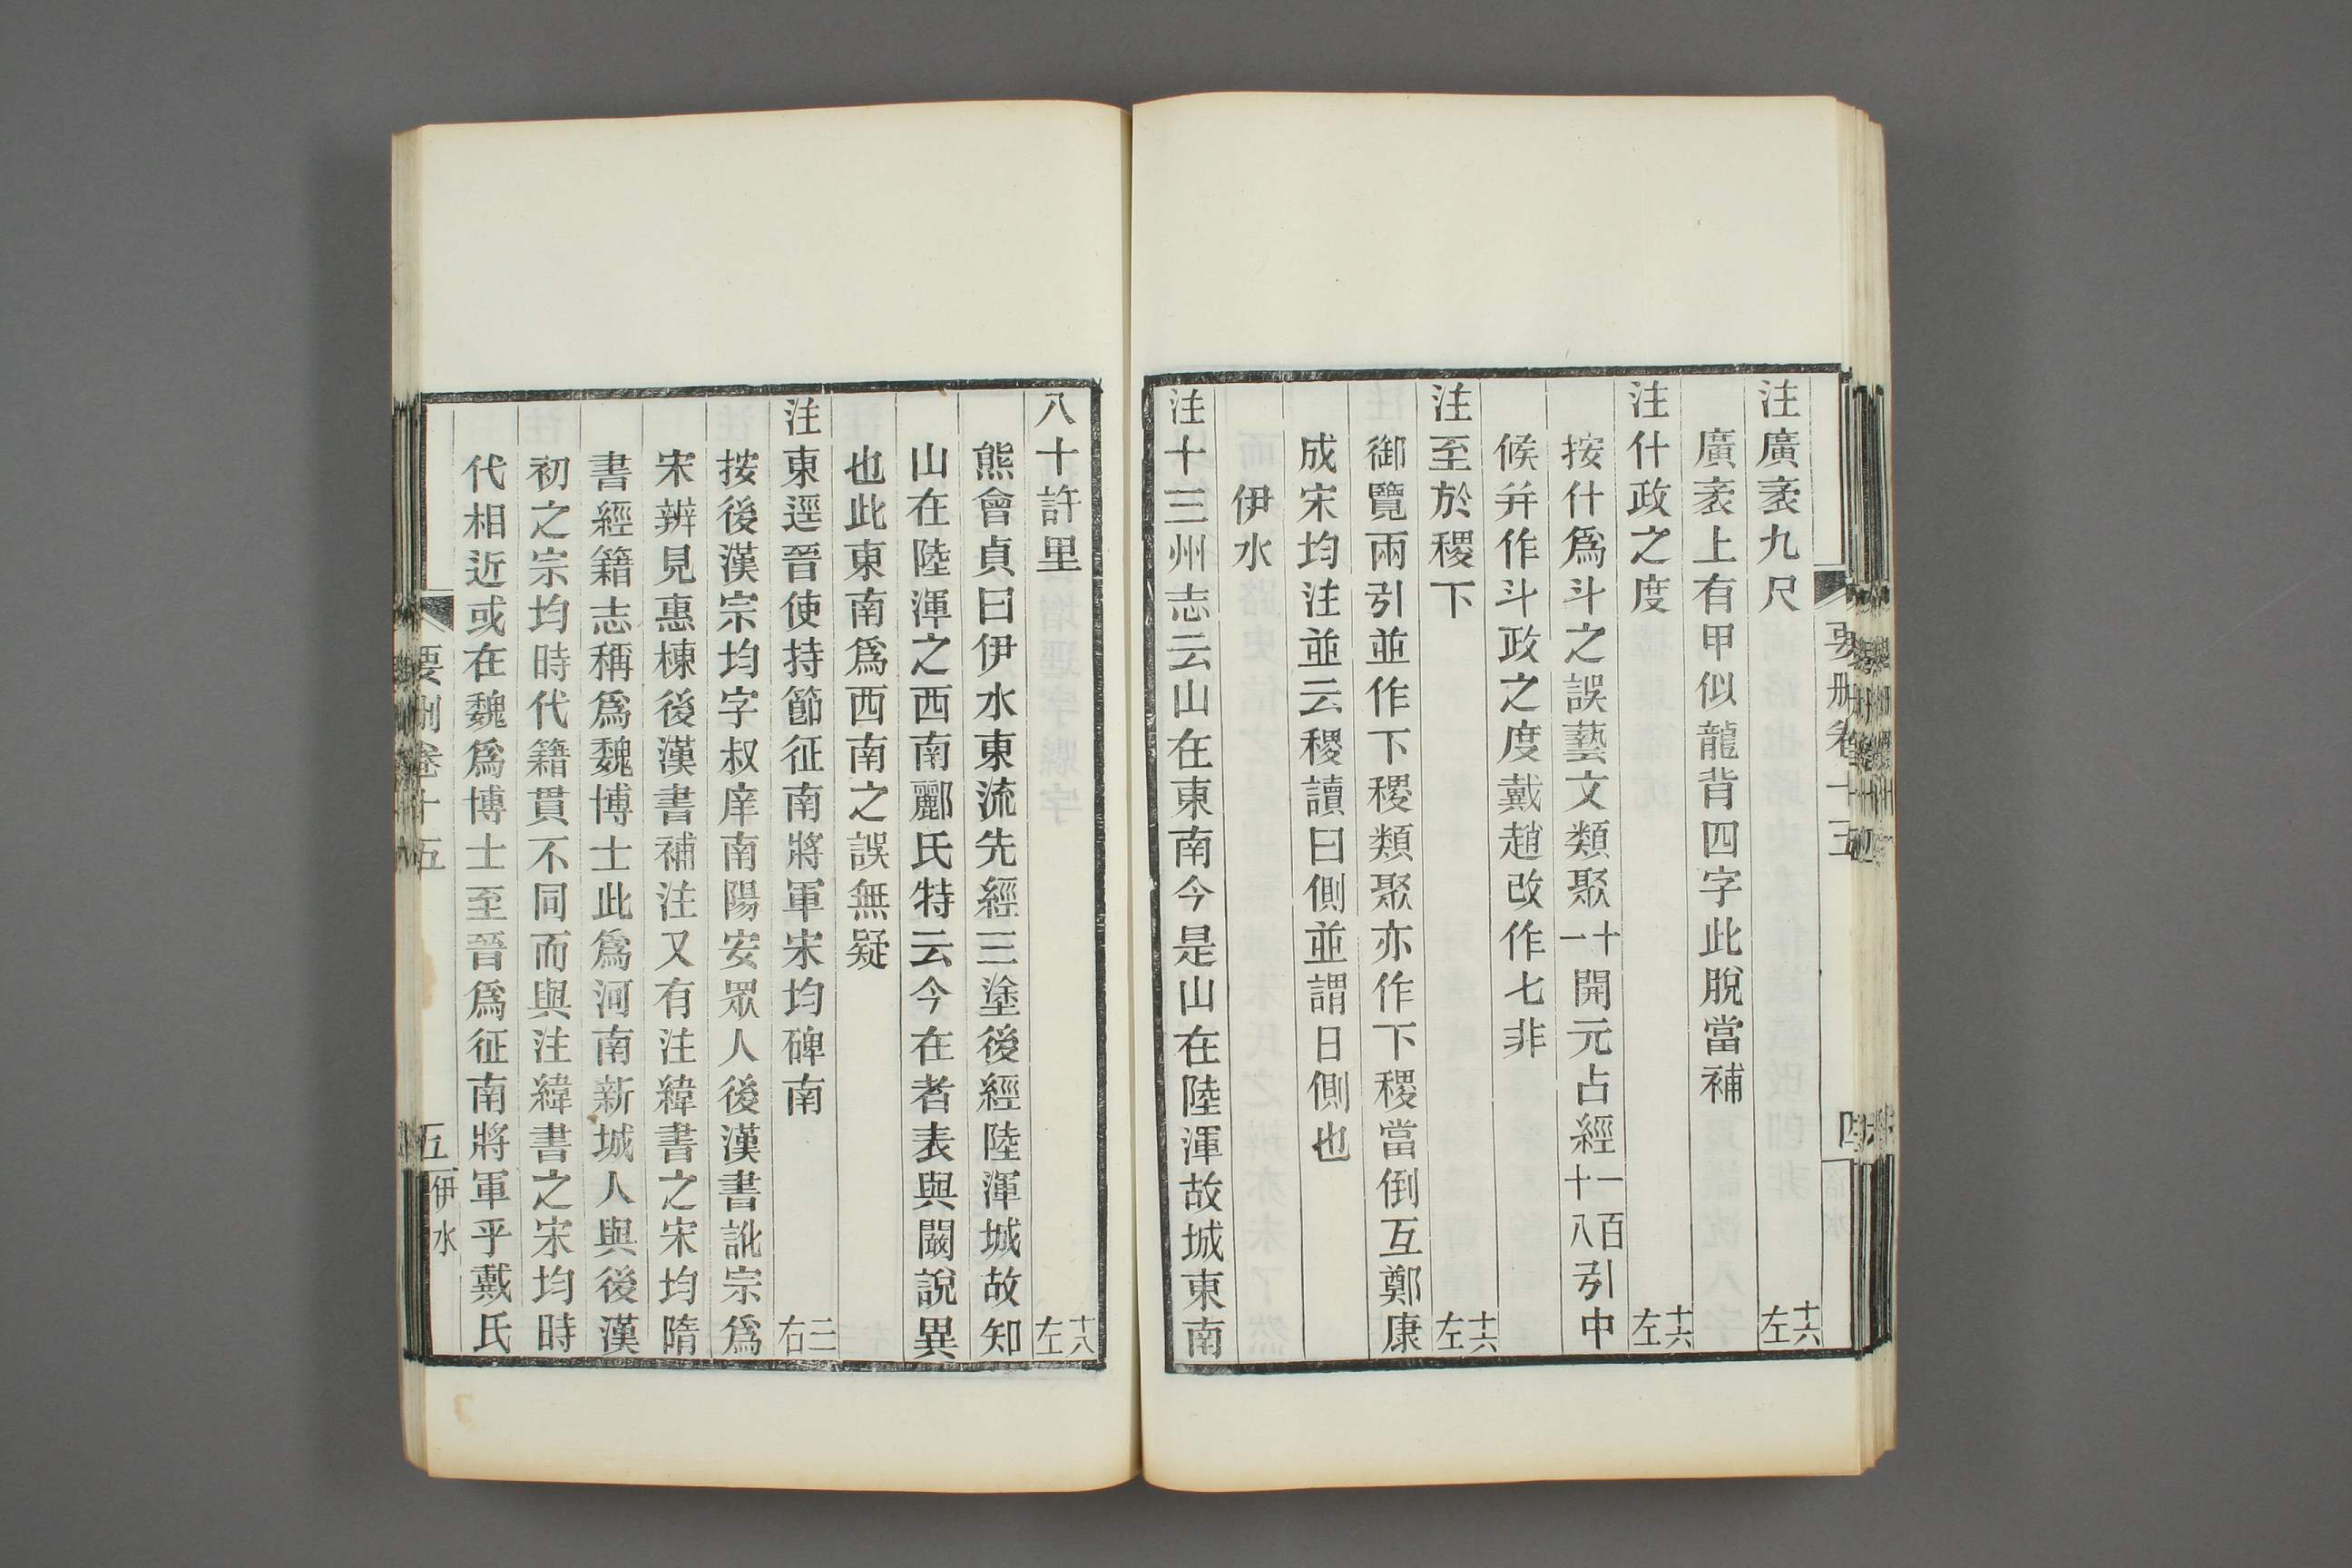 注廣袤九尺 十六左
廣袤上有甲似龍背四字此脫當補
注什政之度 十六左
按什爲斗之誤藝文類聚十一開元占經一百十八引中
候并作斗政之度戴趙改作七非
注至於稷下 十六左
御覽兩引並作下稷類聚亦作下稷當倒互鄭康
成宋均注並云稷讀曰側並謂日側也
伊水
注十三州志云山在東南今是山在陸渾故城東南
八十許里 十八左
熊會貞曰伊水東流先經三塗後經陸渾城故知
山在陸渾之西南酈氏特云今在者表與闞說異
也此東南爲西南之誤無疑
注東逕晉使持節征南將軍宋均碑南 三右
按後漢宗均字叔庠南陽安眾人後漢書訛宗爲
宋辨見惠棟後漢書補注又有注緯書之宋均隋
書經籍志稱爲魏博士此爲河南新城人與後漢
初之宗均時代籍貫不同而與注緯書之宋均時
代相近或在魏爲博士至晉爲征南將軍乎戴氏
要刪卷十五
五 伊水